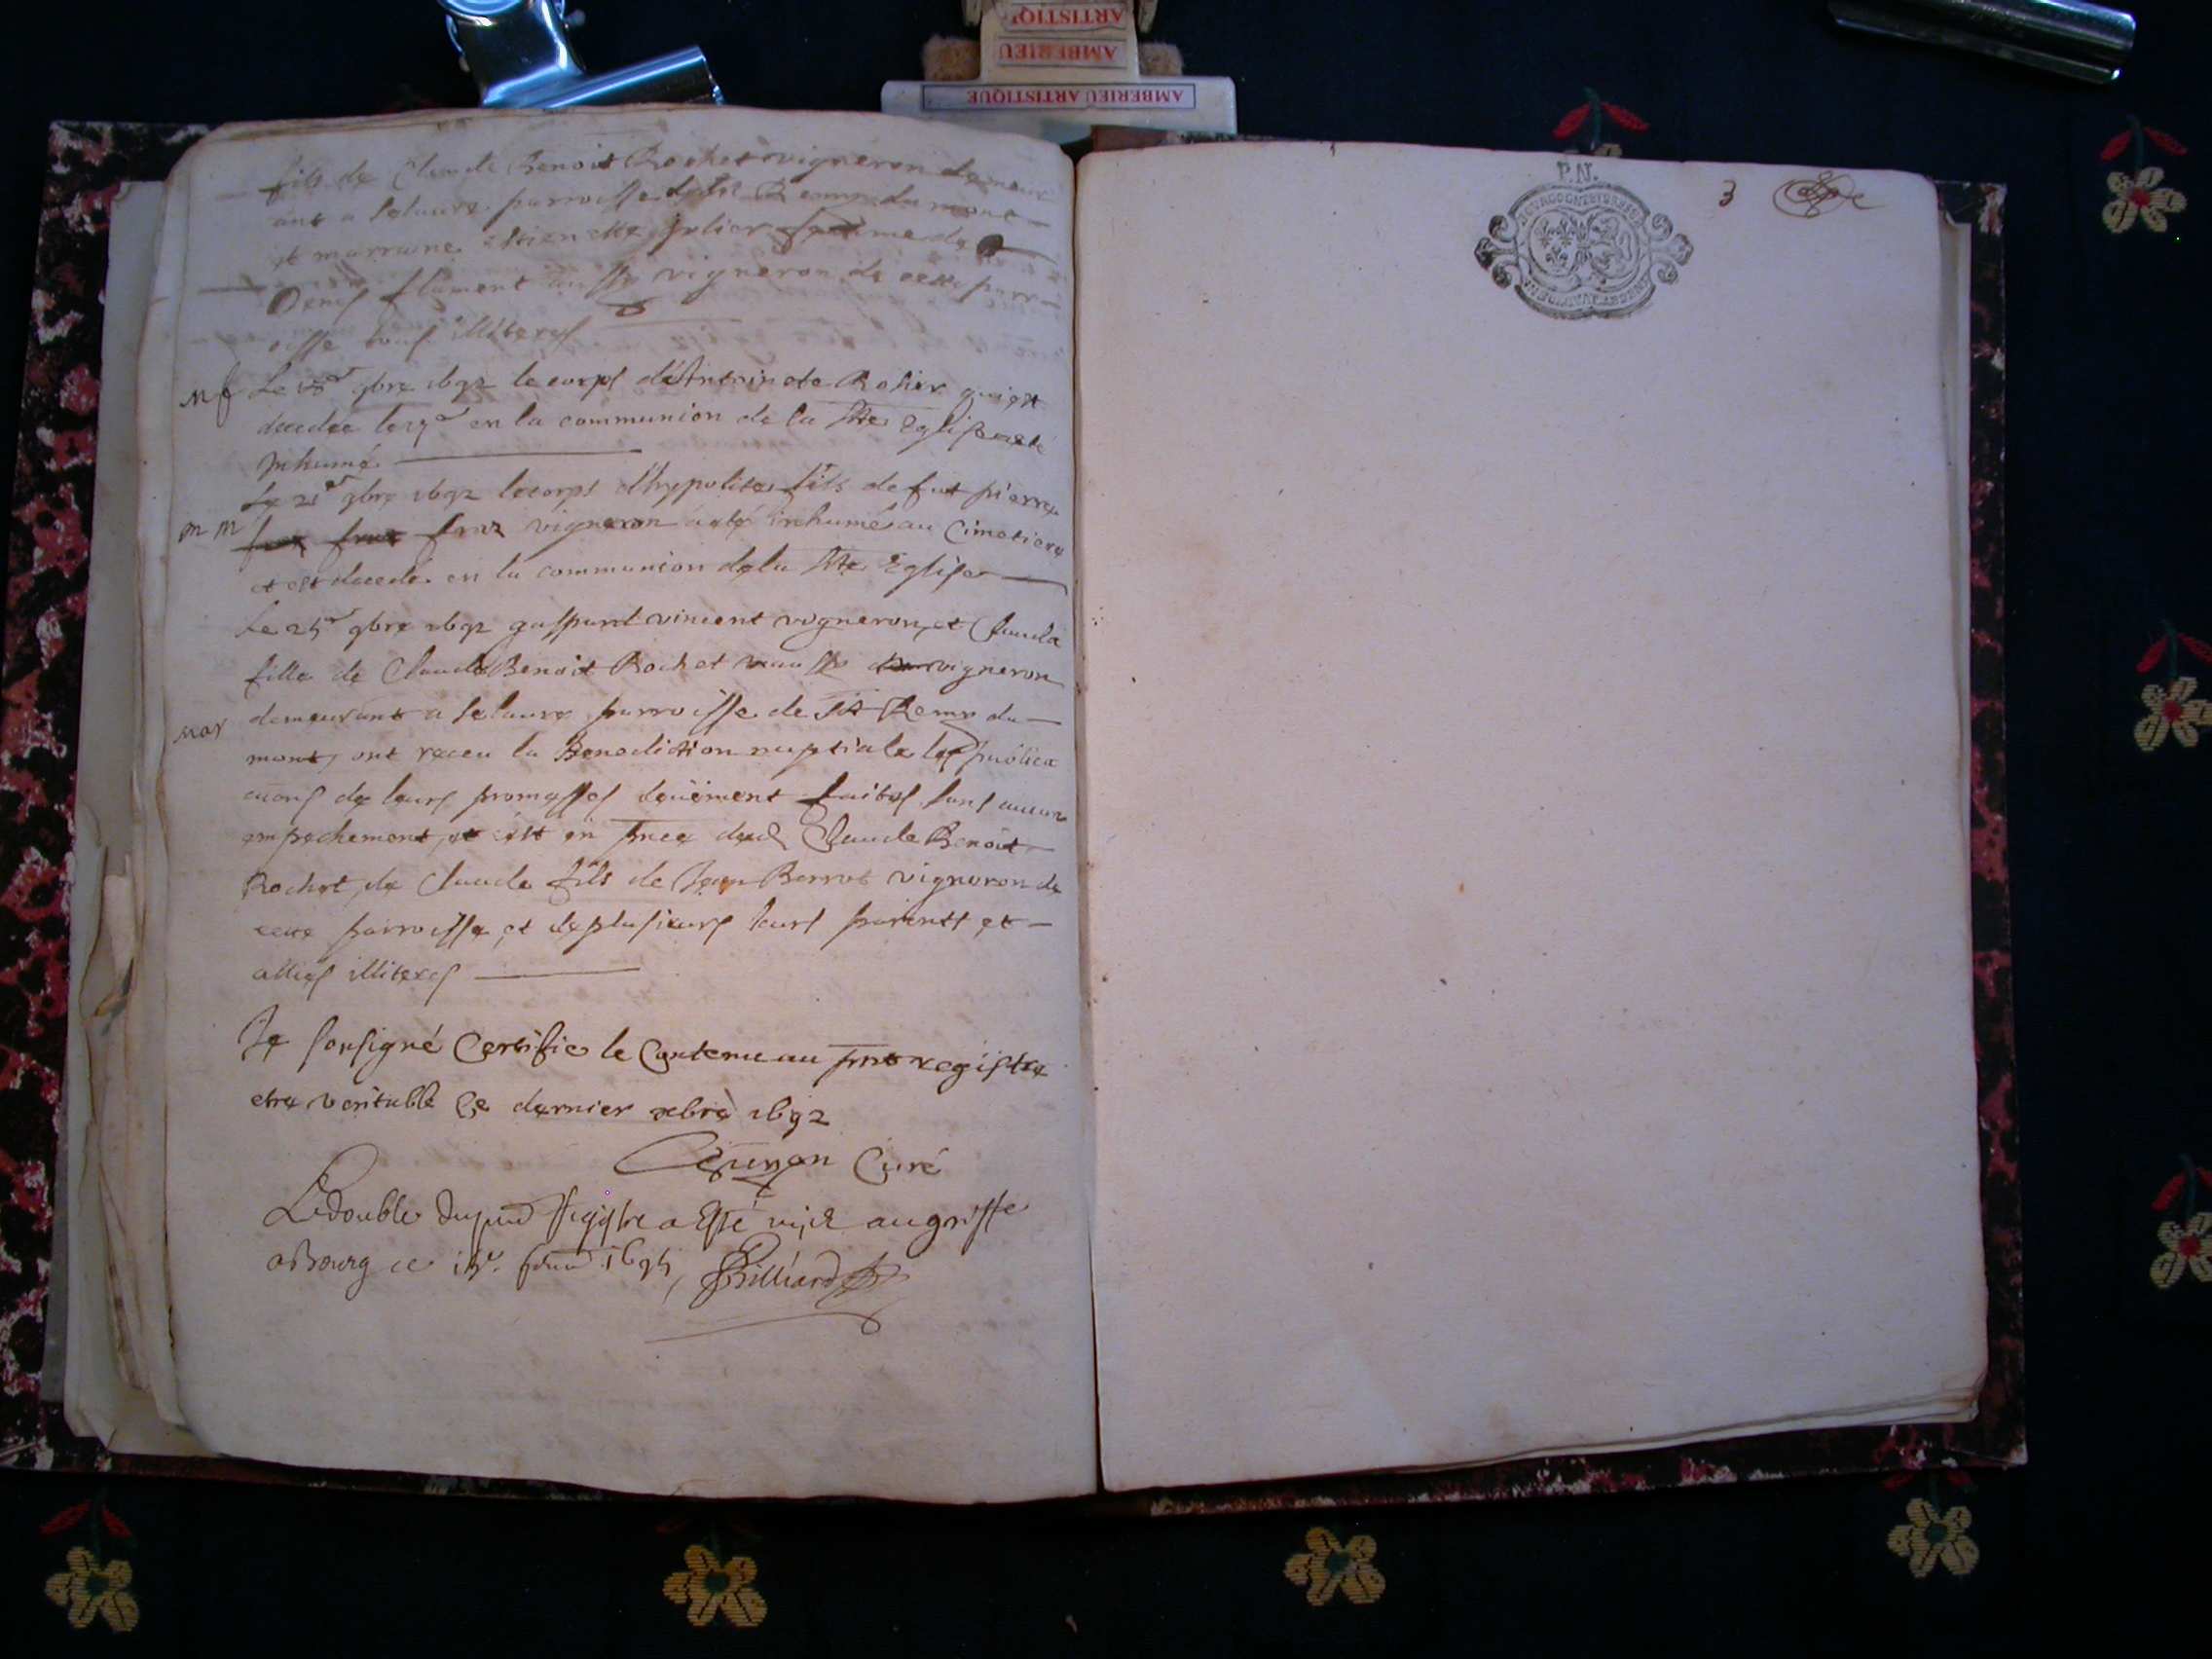 ARTISTIQ
AMBERIEU
AMBERIEU ARTISTIQUE
fils de Claude Benoit Rochet vigneron demeur
ant a Selaure parroisse de St Remy du mont
et marraine estiennette femme de
Denis flament aussy vigneron de cette parr
oisse tous illiteres
mf Le gbre 1692 le corps Rosier qui est
decedee le en la communion de la Ste Eglise a esté
inhumé
Le 21 9bre 1692 le corps d'hypolite fils de fut pierre
mm vigneron a esté inhumé au Cimetiere
et est decedé en la communion de la Ste Eglise
Le 25 9bre 1692 gaspard vincent vigneron, et Clauda
fille de Claude Benoit Rochet aussy vigneron
mar demeurant a Selaure parroisse de St Remy du
mont, ont receu la Benediction nuptiale les publica
cions de leurs promesses deüement faites sans aucun
empechement, et c'est en pnce dud Claude Benoit
Rochet, de Claude fils de Jean Berrot vigneron de
cette parroisse, et de plusieurs leurs parents et
allies illiteres
Je sousigné Certifie le Contenu au pnt registre
etre veritable Ce dernier xbre 1692
Curé
Le double du pnt Registre a Esté mis au greffe
a Bourg ce Billiard
P.N.
3